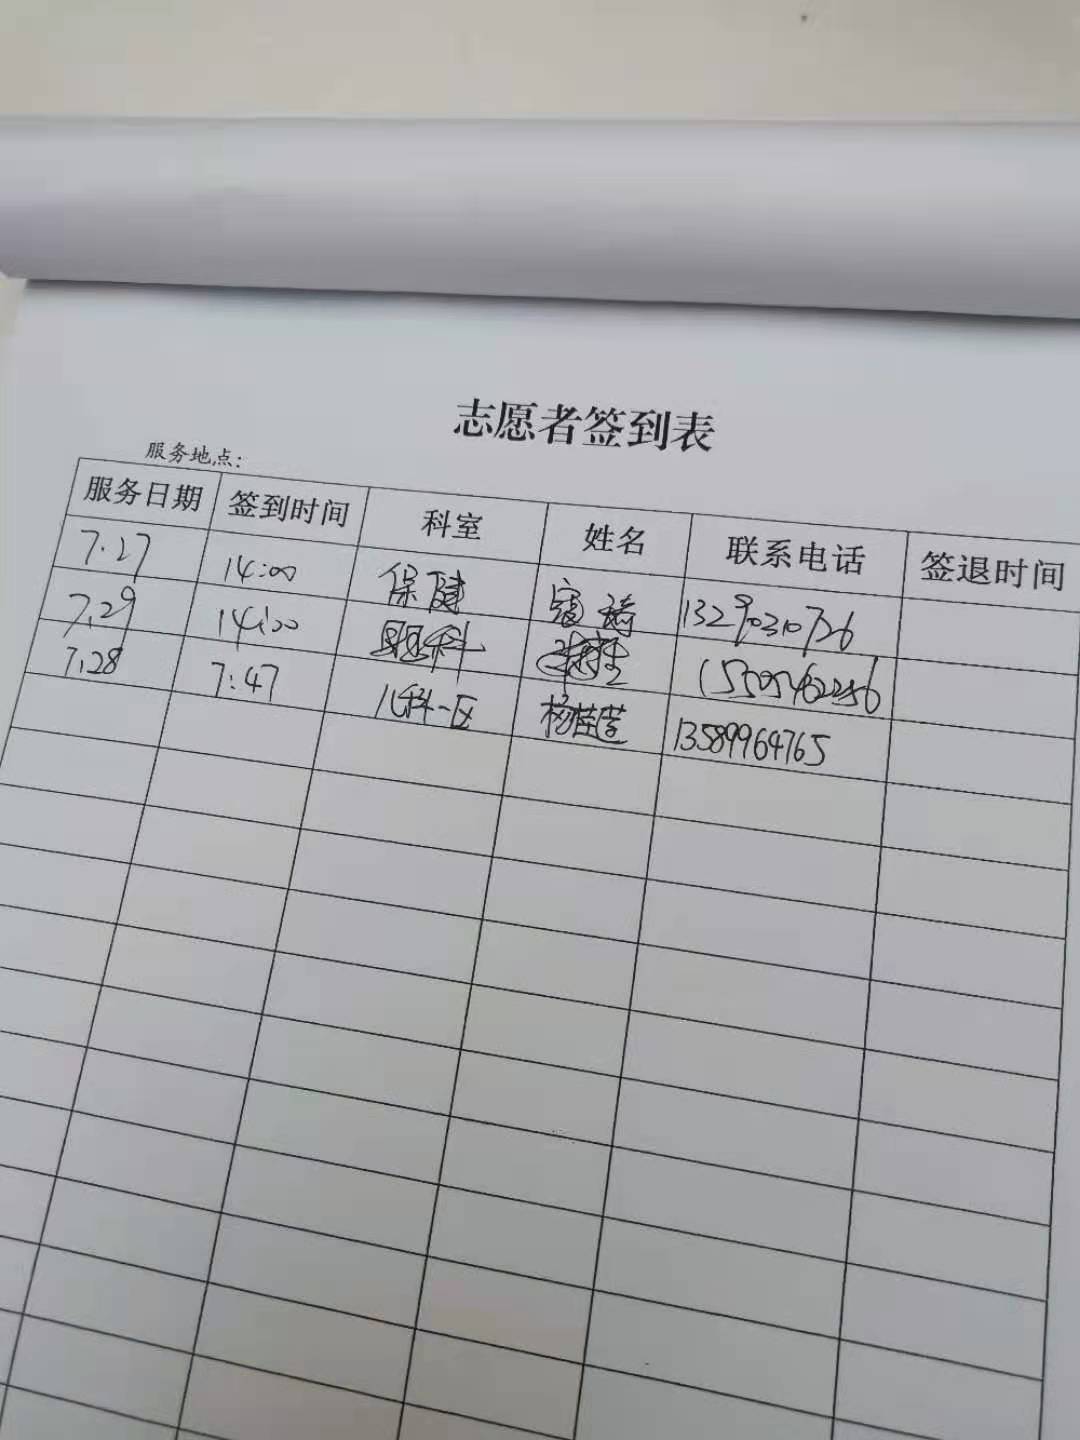 志愿者签到表
服务地点：
服务日期 签到时间 科室 姓名 联系电话 签退时间
7.27 14:00 保健 13290310726
7.29 14:00 眼科
7.28 7:47 儿科一区 杨苗莲 13589964765